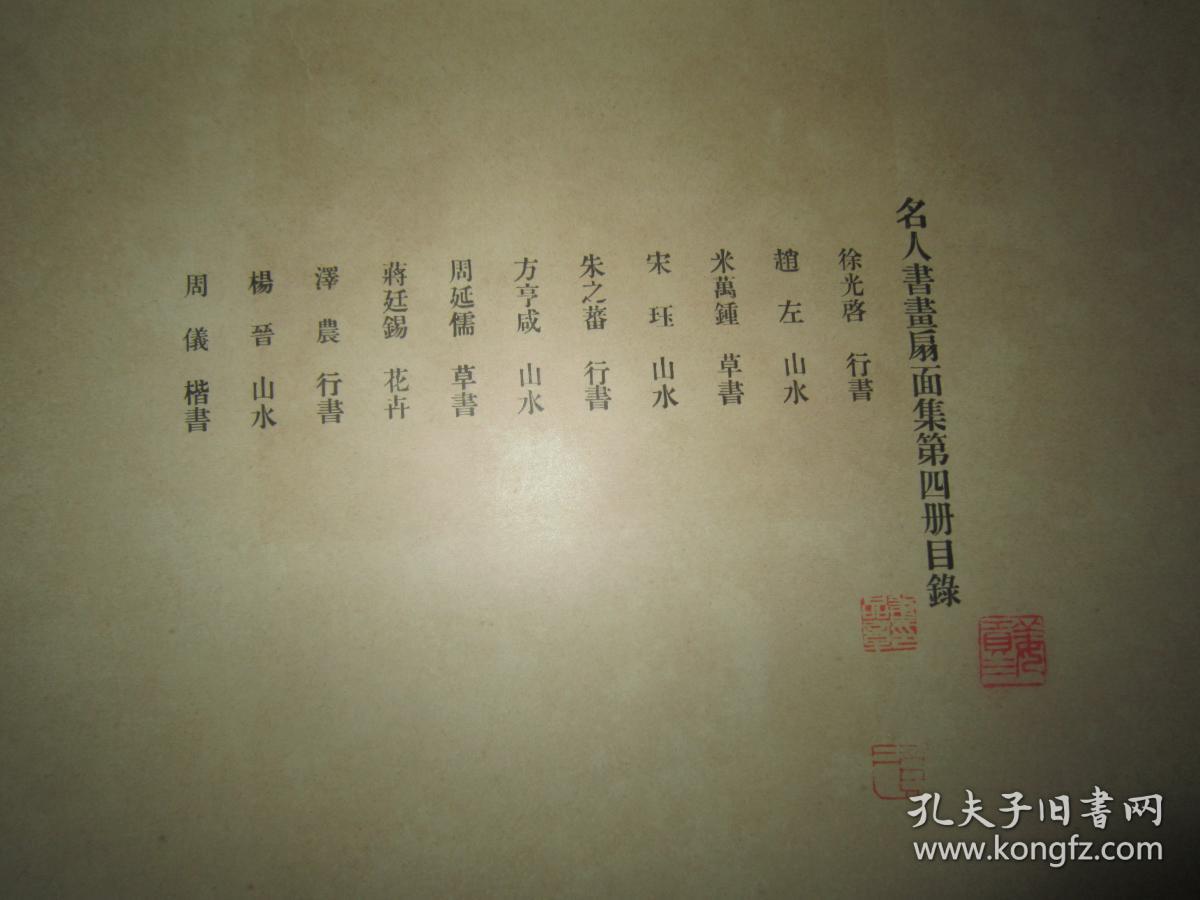 名人書畫扇面集第四册目錄
徐光啓 行書
趙左 山水
米萬鍾 草書
宋珏 山水
朱之蕃 行書
方亨咸 山水
周延儒 草書
蔣廷錫 花卉
澤農 行書
楊晉 山水
周儀 楷書
孔夫子旧书网
www.kongfz.com